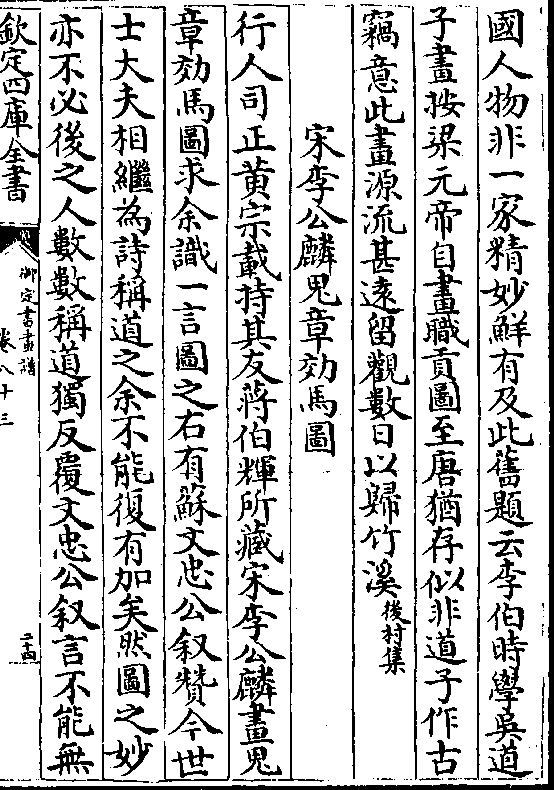 國人物非一家精妙鮮有及此舊題云李伯時學吳道
子畫按梁元帝自畫職貢圖至唐猶存似非道子作古
竊意此畫源流甚遠留觀數日以歸竹溪後村集
宋李公麟鬼章效馬圖
行人司正黄宗載持其友蔣伯輝所藏宋李公麟畫鬼
章效馬圖求余識一言圖之右有蘇文忠公叙贊今世
士大夫相繼為詩稱道之余不能復有加矣然圖之妙
亦不必後之人數數稱道獨反覆文忠公叙言不能無
欽定四庫全書
御定書畫譜
卷八十三
二十四